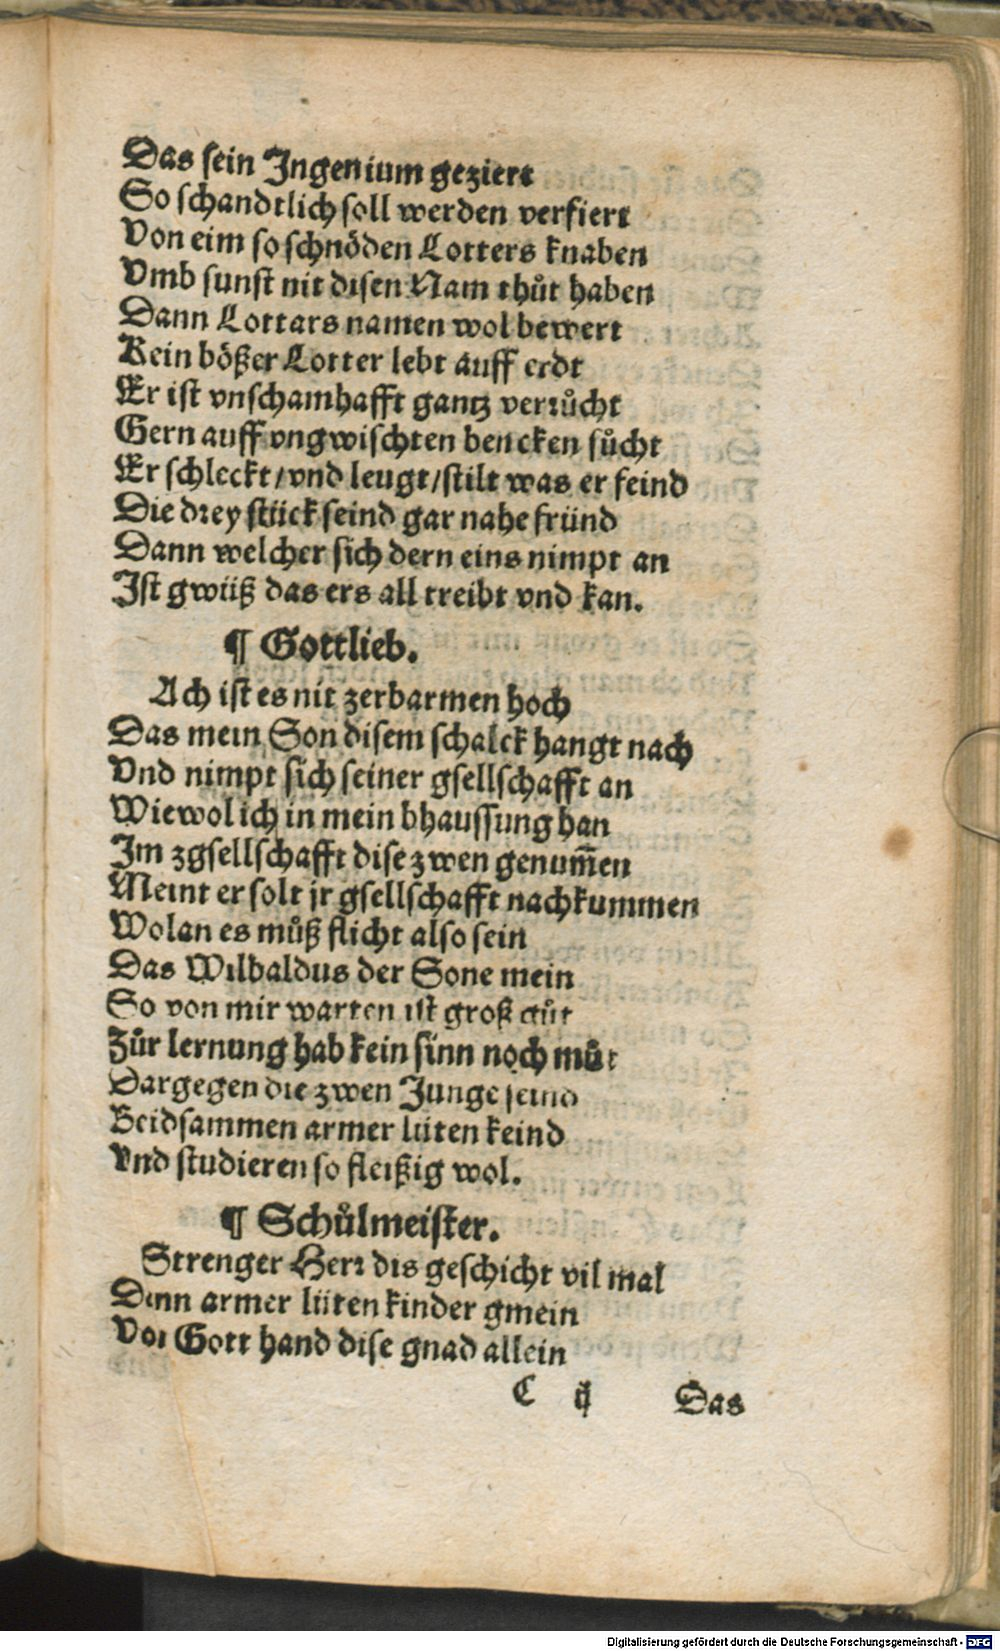 Das sein Ingenium geziert
So schandtlich soll werden verfiert
Von eim so schnöden Lotters knaben
Vmb sunst nit disen Nam thůt haben
Dann Lottars namen wol bewert
Kein bößer Lotter lebt auff erdt
Er ist vnschamhafft gantz verrůcht
Gern auff vngwischten bencken sůcht
Er schleckt/vnd leugt/stilt was er feind
Die drey stück seind gar nahe fründ
Dann welcher sich dern eins nimpt an
Ist gwüß das ers all treibt vnd kan.
¶ Gottlieb.
Ach ist es nit zerbarmen hoch
Das mein Son disem schalck hangt nach
Vnd nimpt sich seiner gsellschafft an
Wiewol ich in mein bhaussung han
Im zgsellschafft dise zwen genum̃en
Meint er solt jr gsellschafft nachkummen
Wolan es můß flicht also sein
Das Wilbaldus der Sone mein
So von mir warten ist groß gůt
Zůr lernung hab kein sinn noch můt
Dargegen die zwen Junge seind
Beidsammen armer lüten keind
Vnd studieren so fleißig wol.
¶ Schůlmeister.
Strenger Herr dis geschicht vil mal
Denn armer lüten kinder gmein
Vor Gott hand dise gnad allein
C ij Das
Digitalisierung gefördert durch die Deutsche Forschungsgemeinschaft - DFG